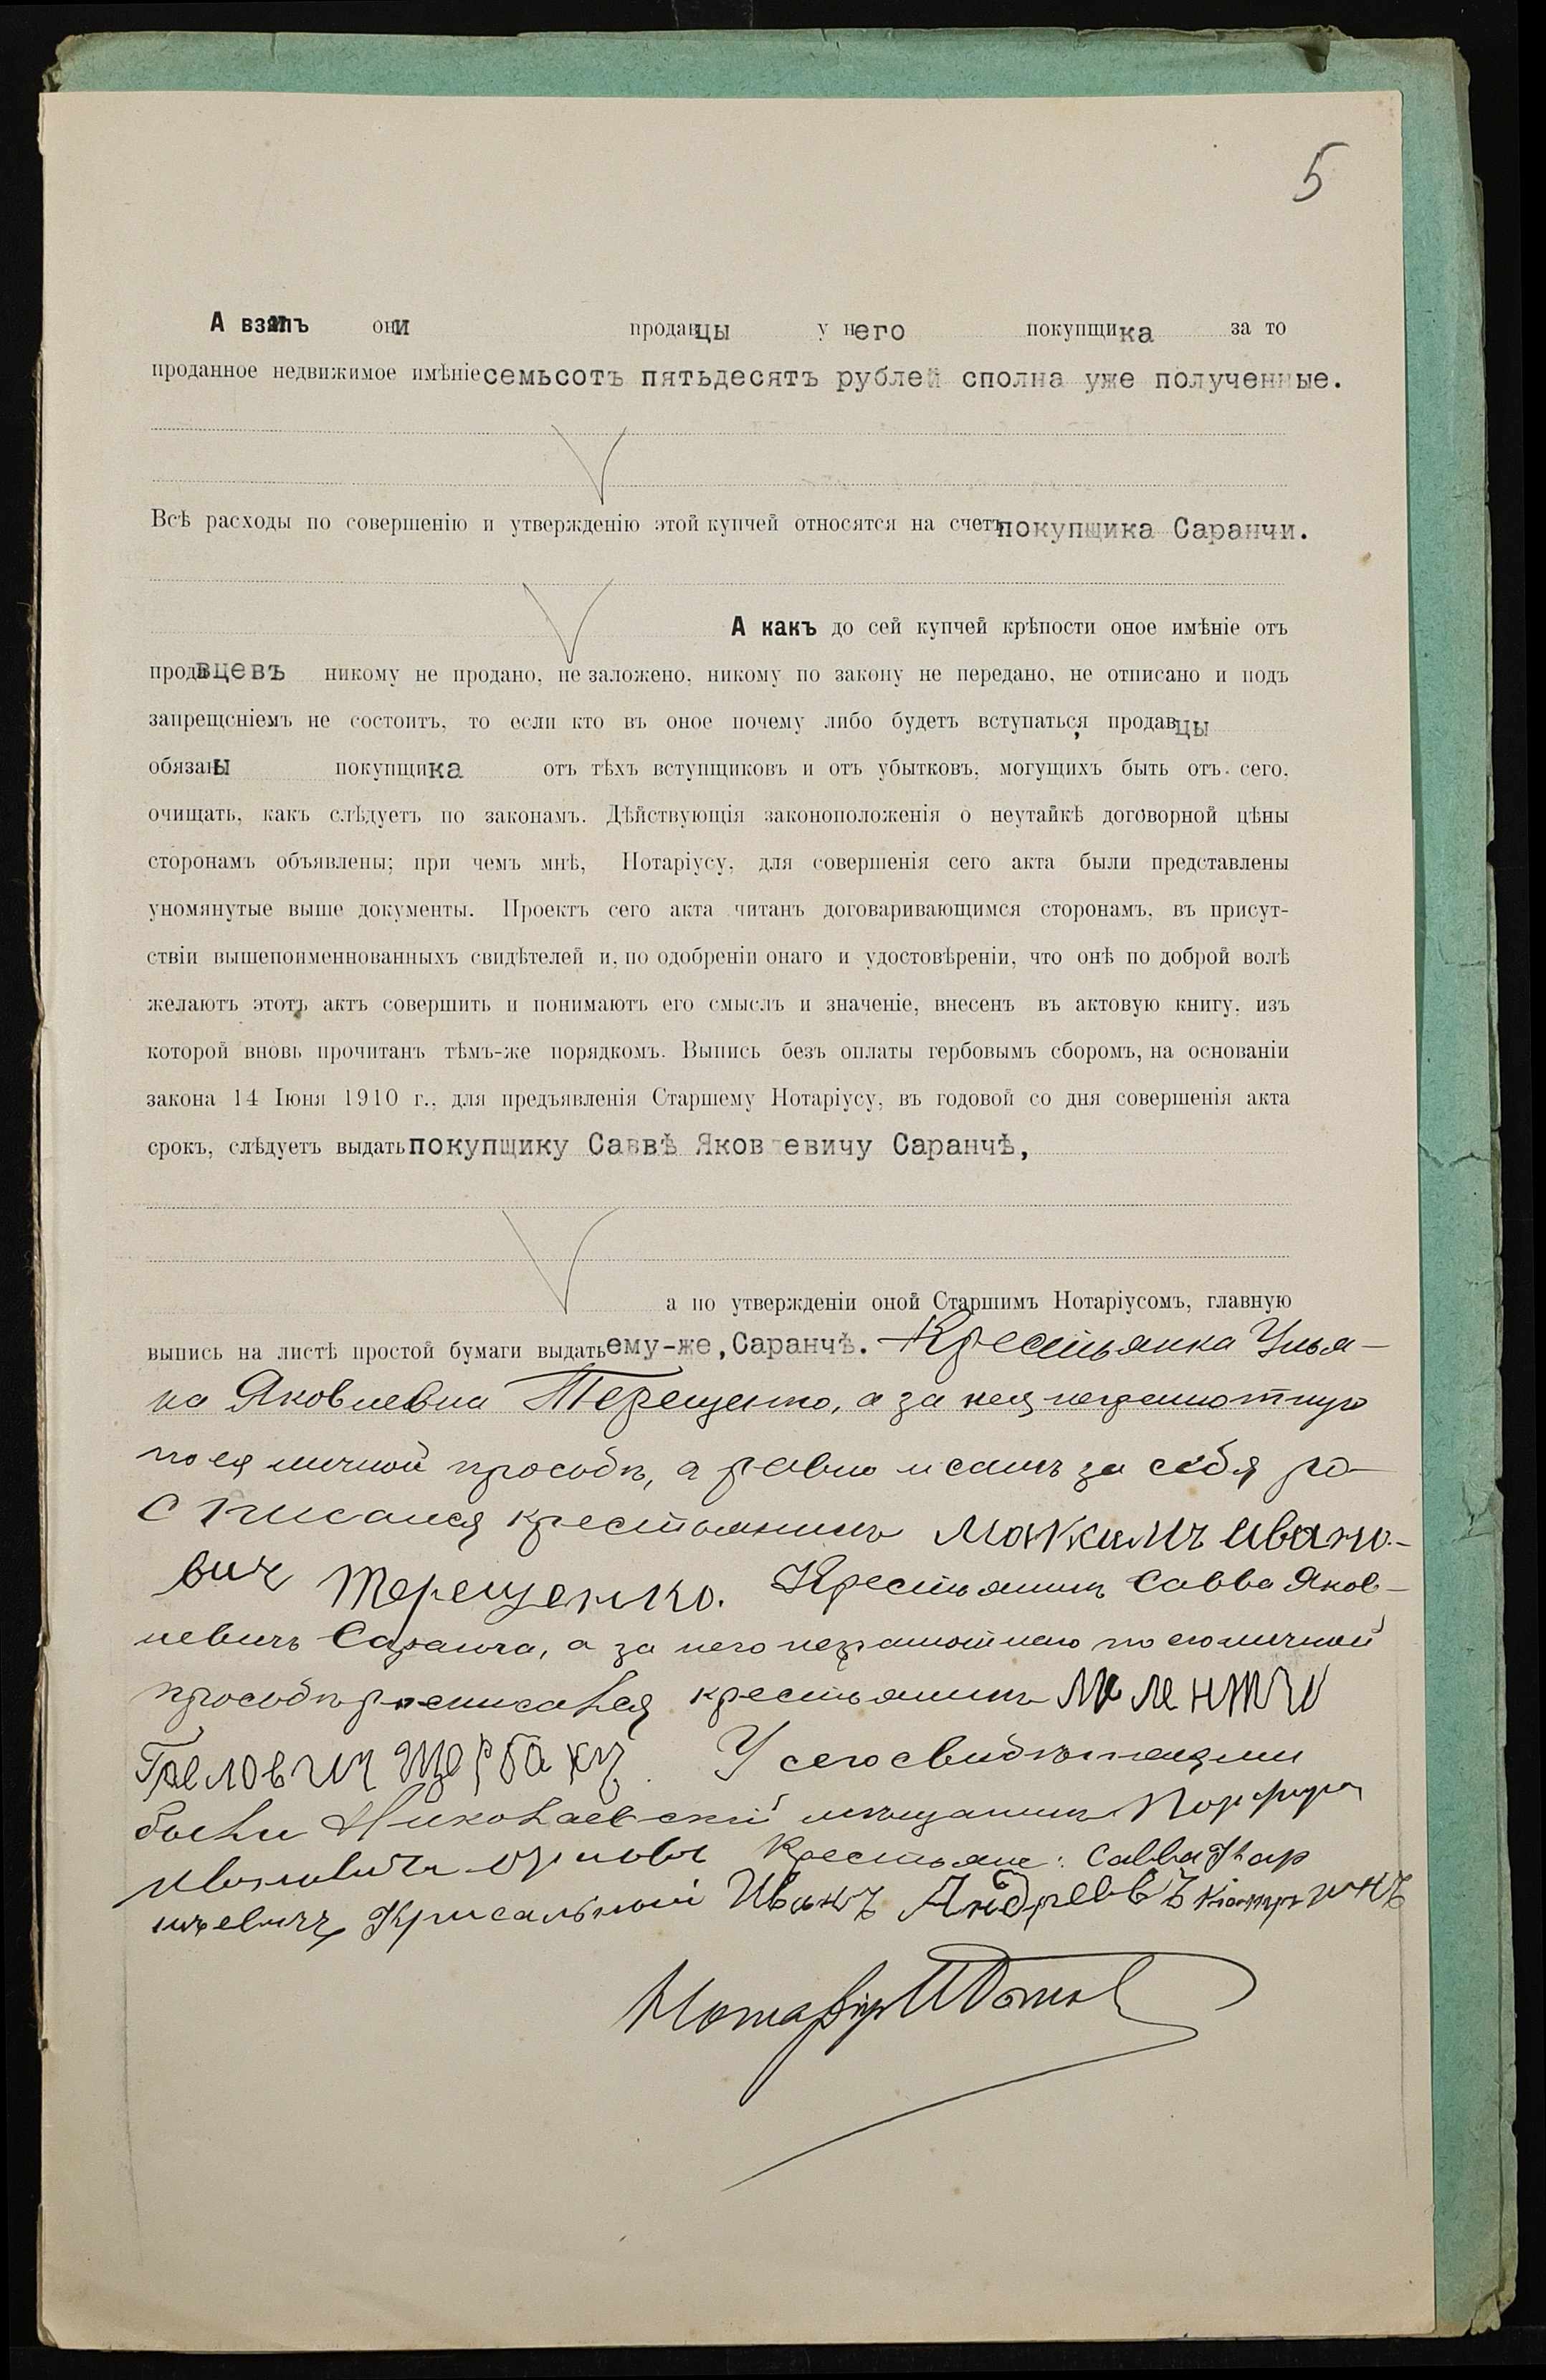 5
А взяли они продавцы у него покупщика за то
проданное недвижимое имѣніе семьсотъ пятьдесятъ рублей сполна уже полученные.
Всѣ расходы по совершенію и утвержденію этой купчей относятся на счетъ покупщика Саранчи.
А какъ до сей купчей крѣпости оное имѣніе отъ
продавцевъ никому не продано, не заложено, никому по закону не передано, не отписано и подъ
запрещеніемъ не состоитъ, то если кто въ оное почему либо будетъ вступаться, продавцы
обязаны покупщика отъ тѣхъ вступщиковъ и отъ убытковъ, могущихъ быть отъ сего,
очищать, какъ слѣдуетъ по законамъ. Дѣйствующія законоположенія о неутайкѣ договорной цѣны
сторонамъ объявлены; при чемъ мнѣ, Нотаріусу, для совершенія сего акта были представлены
уномянутые выше документы. Проектъ сего акта читанъ договаривающимся сторонамъ, въ присут-
ствіи вышепоименнованныхъ свидѣтелей и, по одобреніи онаго и удостовѣреніи, что онѣ по доброй волѣ
желаютъ этотъ актъ совершить и понимаютъ его смыслъ и значеніе, внесенъ въ актовую книгу, изъ
которой вновь прочитанъ тѣмъ-же порядкомъ. Выпись безъ оплаты гербовымъ сборомъ, на основаніи
закона 14 Іюня 1910 г., для предъявленія Старшему Нотаріусу, въ годовой со дня совершенія акта
срокъ, слѣдуетъ выдать покупщику Саввѣ Яковлевичу Саранчѣ,
а по утвержденіи оной Старшимъ Нотаріусомъ, главную
выпись на листѣ простой бумаги выдать ему-же, Саранчѣ. Крестьянка Улья-
на Яковлевна Терещенко, а за нея неграмотную
по ея личной просьбѣ, а равно и самъ за себя ро-
списался крестьянинъ Макимъ Ивано-
вич Терещенко. Крестьянинъ Савва Яков-
левичъ Саранча, а за него неграмотнаго по его личной
просьбѣ росписался крестьянинъ
Щербаку. У сего свидѣтелями
были Николаевскій мѣщанинъ Порфирій
Ивановичъ Орловъ Крестьяне: Савва
Иванъ Андреевъ
Нотаріусъ